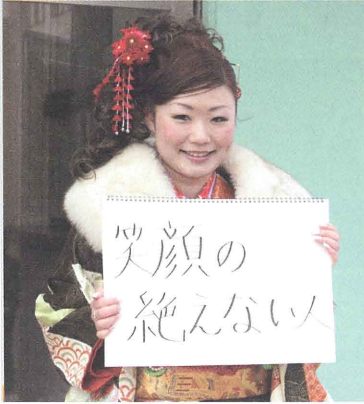 笑顔の
絶えない人